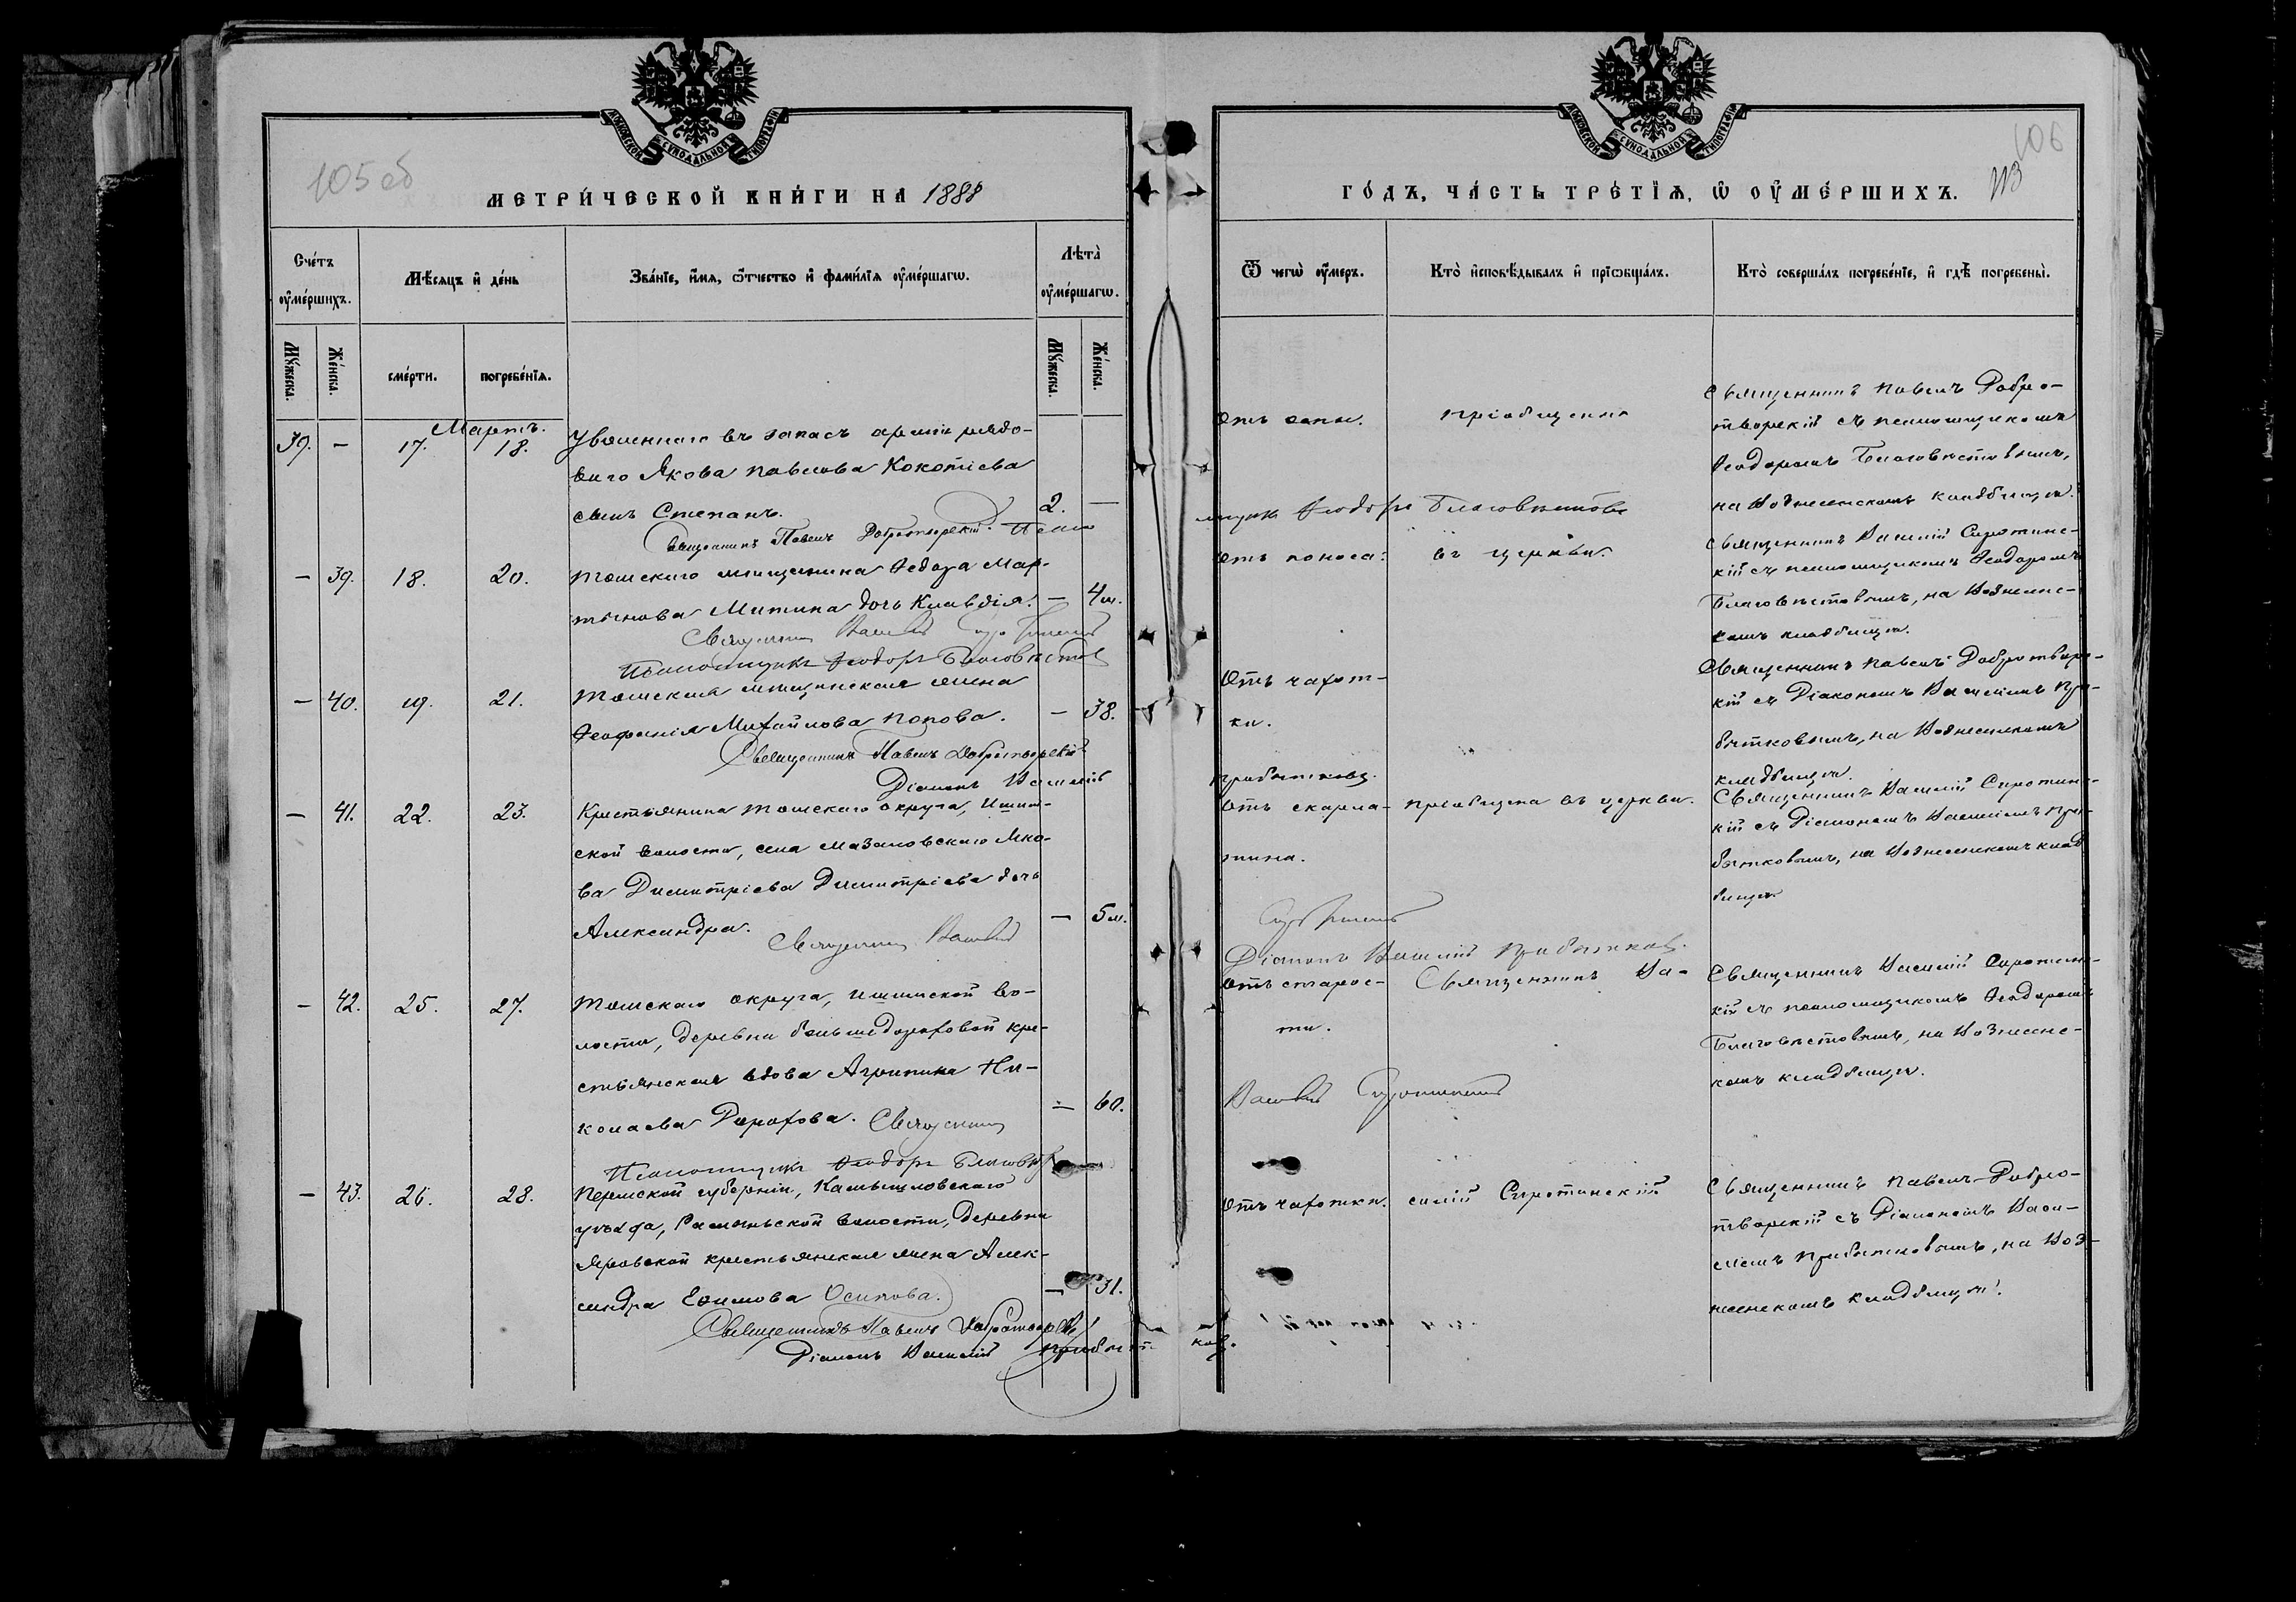 МОСКОВСКОЙ СѴНОДАЛЬНОЙ ТИПОГРАФІИ
105 об
МЕТРИ́ЧЕСКОЙ КНИ́ГИ НА 1888
Сче́тъ оу҆ме́ршихъ.
Мѣ́сяцъ и҆ де́нь
Зва́нїе, и҆́мѧ, ѻ҆́тчество и҆ фами́лїѧ оу҆ме́ршагѡ.
Лѣта̀ оу҆ме́ршагѡ.
Мꙋ́жеска.
Же́нска.
сме́рти.
погребе́нїѧ.
Мꙋ́жеска.
Же́нска.
Мартъ.
39. — 17. 18. Уволеннаго въ запасъ арміи рядо-
ваго Якова Павлова Кокотіева
сынъ Степанъ. 2. —
Священникъ Павелъ Добротворскій. Псало
— 39. 18. 20. Томскаго мѣщанина Ѳедора Мар-
тынова Митина дочь Клавдія. — 4 м.
Священникъ Василій Сиротинскій
Псаломщикъ Ѳеодоръ Благовѣстовъ
— 40. 19. 21. Томская мѣщанская жена
Ѳеофанія Михайлова Попова. — 38.
Священникъ Павелъ Добротворскій
Діаконъ Василій
— 41. 22. 23. Крестьянина Томскаго округа, Ишим-
ской волости, села Мазаловскаго Яко-
ва Димитріева Димитріева дочь
Александра. — 5 м.
Священникъ Василій
— 42. 25. 27. Томскаго округа, Ишимской во-
лости, деревни Большедорофовой кре-
стьянская вдова Агрипина Ни-
колаева Дорофова. — 60.
Священникъ
Псаломщикъ Ѳеодоръ Благовѣст
— 43. 26. 28. Пермской губерніи, Камышловскаго
уѣзда, волости, деревни
Яровской крестьянская жена Алек-
сандра Ефимова Осипова. — 31.
Священникъ Павелъ Добротворскій
Діаконъ Василій Прибыт
МОСКОВСКОЙ СѴНОДАЛЬНОЙ ТИПОГРАФІИ
106
113
ГО́ДЪ, ЧА́СТЬ ТРЕ́ТЇѦ, Ѡ҆ ОУ҆МЕ́РШИХЪ.
Ѿ чегѡ̀ оу҆́меръ.
Кто̀ и҆сповѣ́дывалъ и҆ прїѡбща́лъ.
Кто̀ соверша́лъ погребе́нїе, и҆ гдѣ̀ погребены̀.
Отъ оспы.
пріобщенъ
Священникъ Павелъ Добро-
творскій съ псаломщикомъ
Ѳеодоромъ Благовѣстовымъ,
на Вознесенскомъ кладбищѣ.
мщикъ Ѳеодоръ Благовѣстовъ
Отъ поноса.
въ церкви.
Священникъ Василій Сиротинс-
кій съ псаломщикомъ Ѳеодоромъ
Благовѣстовымъ, на Вознесенс-
комъ кладбищѣ.
Отъ чахот-
ки.
Священникъ Павелъ Добротворс-
кій съ Діакономъ Василіемъ При-
бытковымъ, на Вознесенскомъ
кладбищѣ.
Прибытковъ.
Отъ скарла-
тина.
пріобщена въ церкви.
Священникъ Василій Сиротинс-
кій съ Діакономъ Василіемъ При-
бытковымъ, на Вознесенскомъ клад
бищѣ.
Сиротинскій
Діаконъ Василій Прибытковъ.
Отъ старос-
ти.
Священникъ Ва-
Священникъ Василій Сиротинс-
кій съ псаломщикомъ Ѳеодоромъ
Благовѣстовымъ, на Вознесенс-
комъ кладбищѣ.
Василій Сиротинскій
Отъ чахотки.
силій Сиротинскій
Священникъ Павелъ Добро-
творскій съ Діакономъ Васи-
ліемъ Прибытковымъ, на Воз-
несенскомъ кладбищѣ.
ковъ.